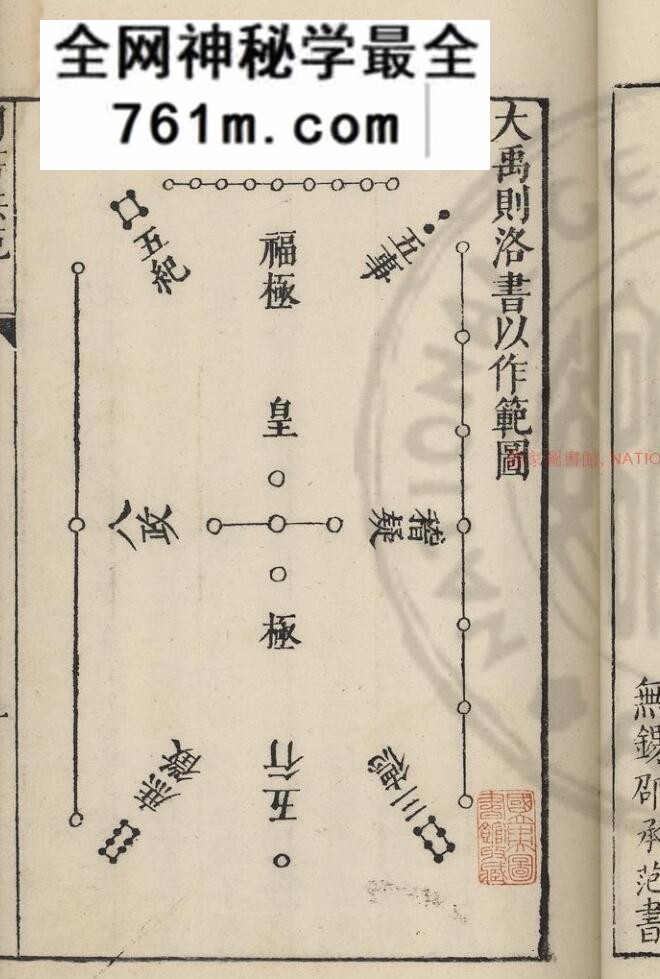 全网神秘学最全
761m.com
大禹則洛書以作範圖
五事
福極
五紀
皇
稽疑
八政
極
三德
五行
庶徵
國立東圖
書館收藏
圖書館
無錫邵承范書